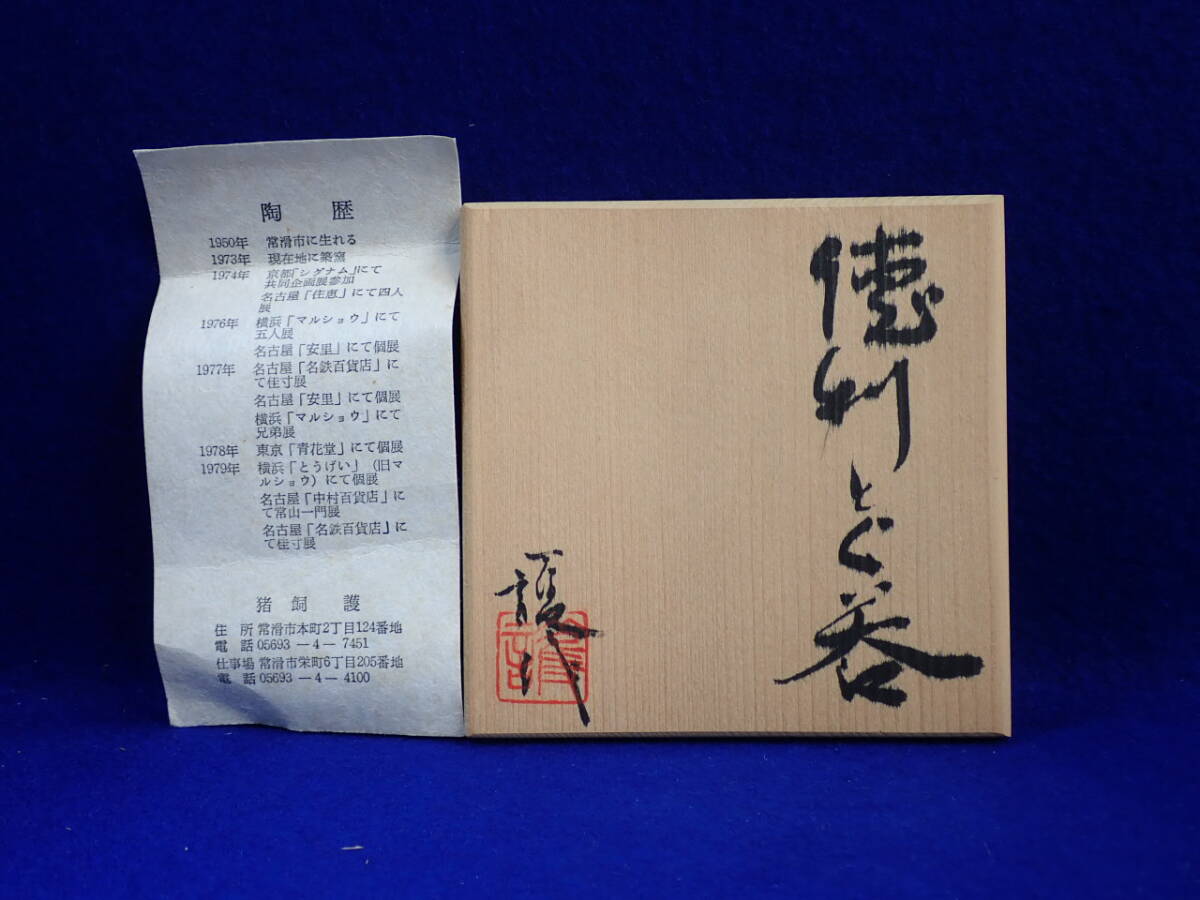 陶歴
1950年 常滑市に生れる
1973年 現在地に築窯
1974年 京都「シグナム」にて
共同企画展参加
名古屋「佳恵」にて四人
展
1976年 横浜「マルショウ」にて
五人展
名古屋「安里」にて個展
1977年 名古屋「名鉄百貨店」に
て佳寸展
名古屋「安里」にて個展
横浜「マルショウ」にて
兄弟展
1978年 東京「青花堂」にて個展
1979年 横浜「とうげい」(旧マ
ルショウ)にて個展
名古屋「中村百貨店」に
て常山一門展
名古屋「名鉄百貨店」に
て佳寸展
猪飼護
住所 常滑市本町2丁目124番地
電話 05693―4―7451
仕事場 常滑市栄町6丁目205番地
電話 05693―4―4100
徳利とぐ呑
護作
護